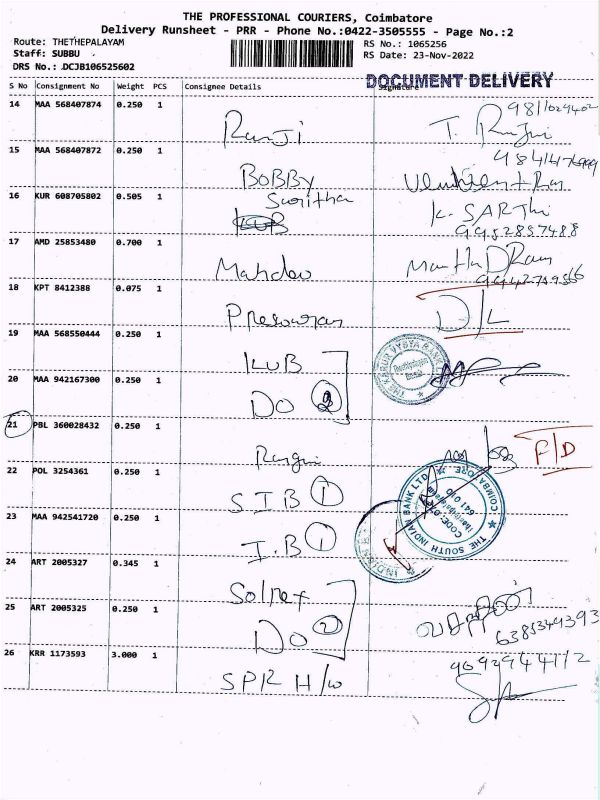 THE PROFESSIONAL COURIERS, Coimbatore
Delivery Runsheet - PRR - Phone No.:0422-3505555 - Page No.:2
Route: THETHEPALAYAM
RS No.: 1065256
Staff: SUBBU
RS Date: 23-Nov-2022
DRS No.: DCJB106525602
DOCUMENT DELIVERY
S No Consignment No Weight PCS Consignee Details Signature
14 MAA 568407874 0.250 1
Ranji T.
15 MAA 568407872 0.250 1
BOBBY
16 KUR 608705802 0.505 1 Suritha
KUB K. SARTHI
9952857488
17 AMD 25853480 0.700 1
Mahdev
18 KPT 8412388 0.075 1
D/L
19 MAA 568550444 0.250 1
KUB
THE KARUR VYSYA BANK
20 MAA 942167300 0.250 1
DO 2
21 PBL 360028432 0.250 1
F/D
22 POL 3254361 0.250 1
S.I.B 1
THE SOUTH INDIAN BANK LTD
COIMBATORE
641 010
23 MAA 942541720 0.250 1
I.B 1
INDIAN
24 ART 2005327 0.345 1
25 ART 2005325 0.250 1
DO 2
6385349393
26 KRR 1173593 3.000 1
SPR H/W